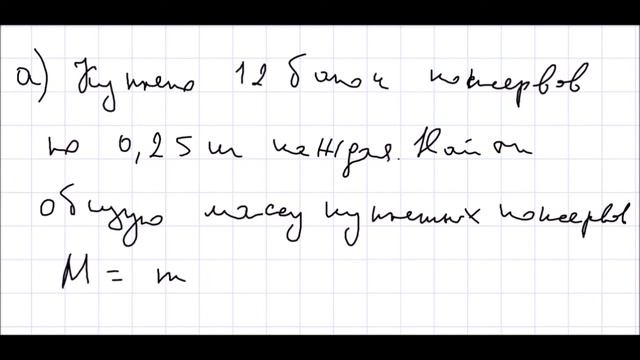 а) Куплено 12 банок консервов
по 0,25 m каждая. Найти
общую массу купленных консервов
M = m